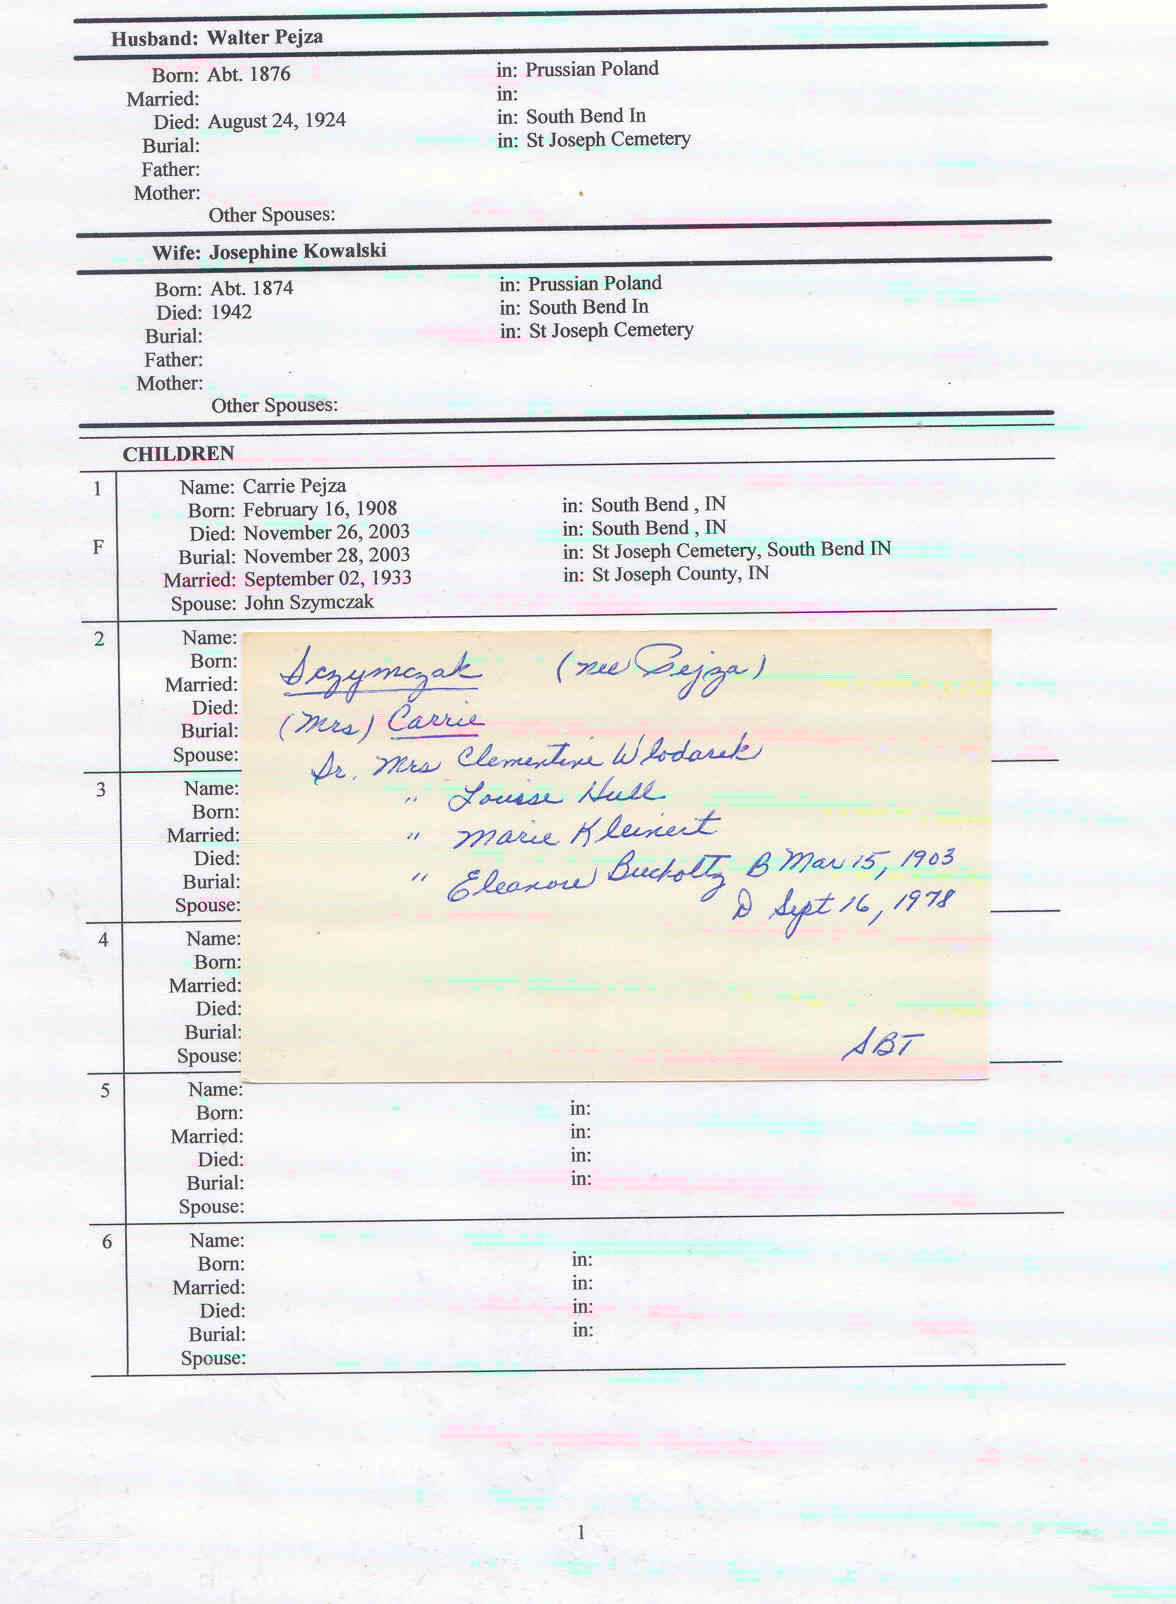 Husband: Walter Pejza
Born: Abt. 1876 in: Prussian Poland
Married: in:
Died: August 24, 1924 in: South Bend In
Burial: in: St Joseph Cemetery
Father:
Mother:
Other Spouses:
Wife: Josephine Kowalski
Born: Abt. 1874 in: Prussian Poland
Died: 1942 in: South Bend In
Burial: in: St Joseph Cemetery
Father:
Mother:
Other Spouses:
CHILDREN
1 Name: Carrie Pejza
Born: February 16, 1908 in: South Bend , IN
Died: November 26, 2003 in: South Bend , IN
F Burial: November 28, 2003 in: St Joseph Cemetery, South Bend IN
Married: September 02, 1933 in: St Joseph County, IN
Spouse: John Szymczak
2 Name:
Born:
Married:
Died:
Burial:
Spouse:
Sczymczak (nee Pejza)
(Mrs) Carrie
Sr. Mrs Clementine Wlodarek
" Louise Hull
" Marie Kleinert
" Eleanore Bucholtz B Mar 15, 1903
D Sept 16, 1978
SBT
3 Name:
Born:
Married:
Died:
Burial:
Spouse:
4 Name:
Born:
Married:
Died:
Burial:
Spouse:
5 Name:
Born: in:
Married: in:
Died: in:
Burial: in:
Spouse:
6 Name:
Born: in:
Married: in:
Died: in:
Burial: in:
Spouse:
1